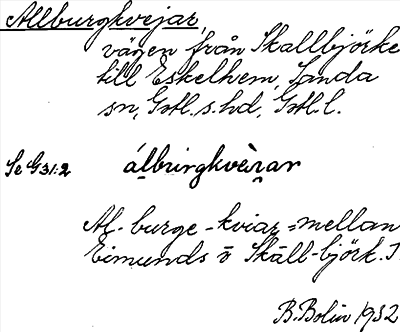 Allburgkvejar,
vägen från Skallbjörke
till Eskelhem, Sanda
sn, Gotl. s. hd, Gotl. l.
Se G31:2 álburgkvèi̯ar
Al-burge-kviar = mellan
Eimunds o Skäll-björk. S.
B. Bolin 1932